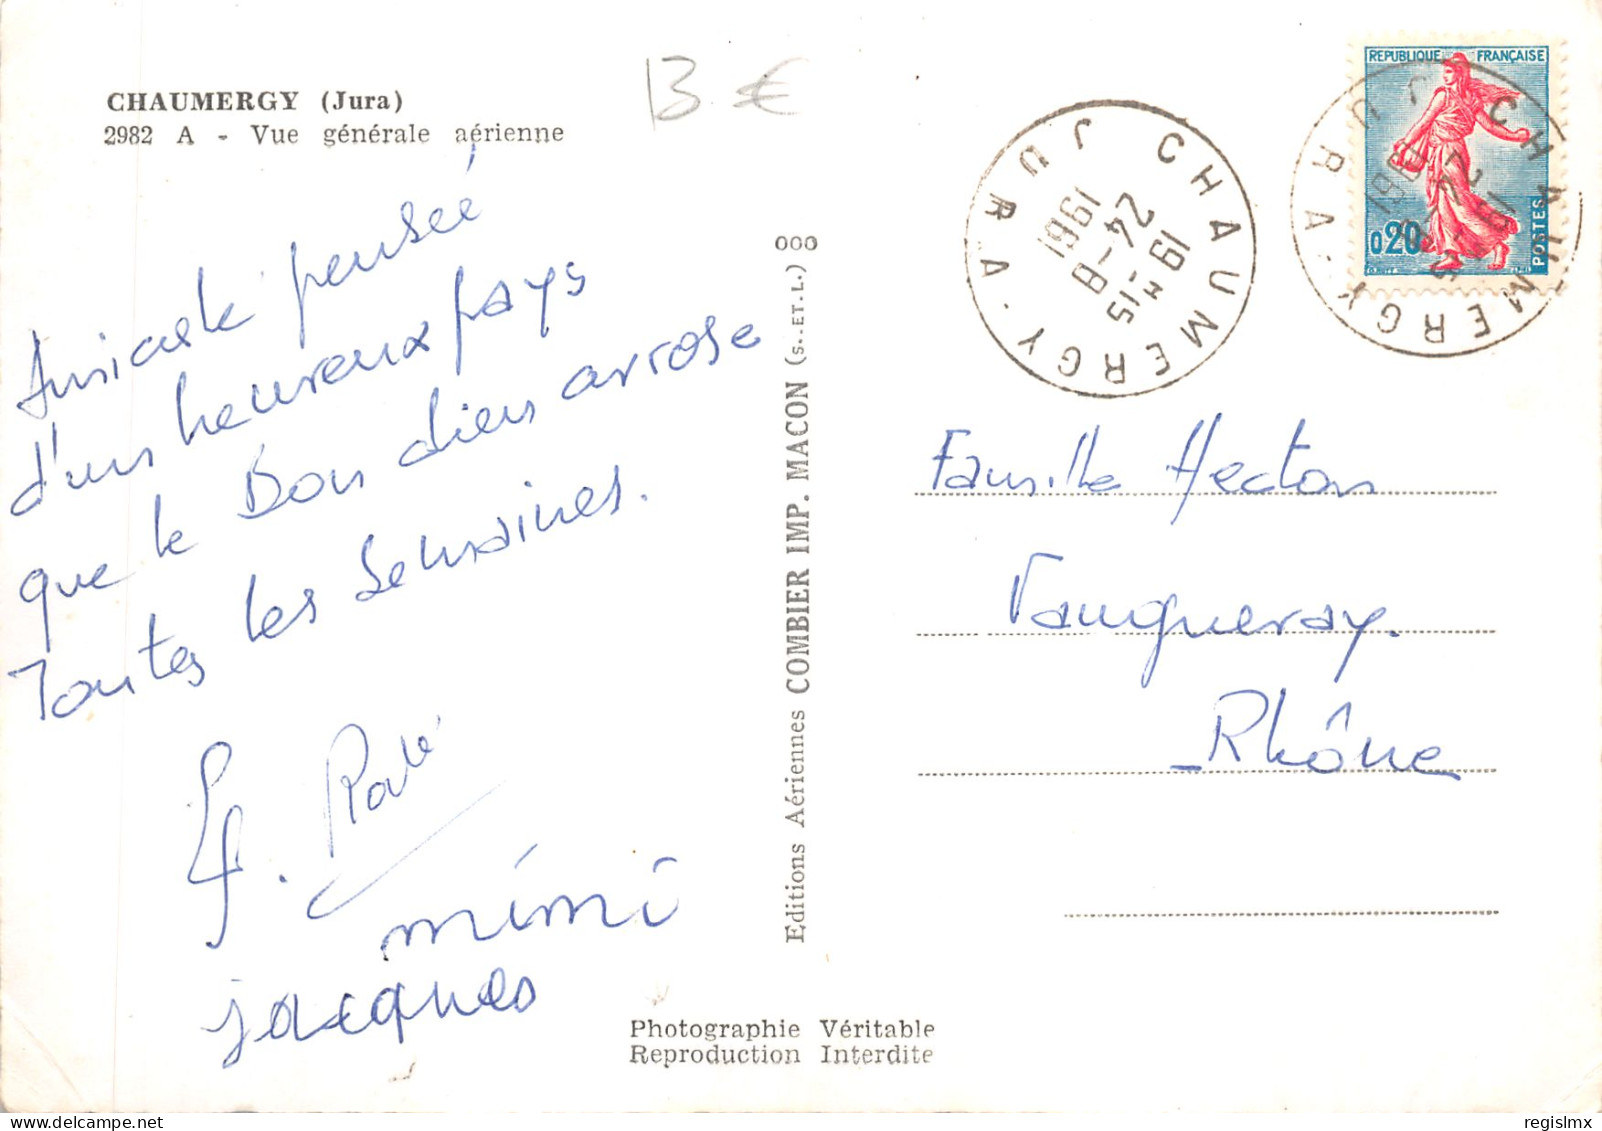 CHAUMERGY (Jura)
2982 A - Vue générale aérienne
13 €
Amicale pensée
d'un heureux pays
que le Bon dieu arrose
Toutes les semaines.
mimi
jacques
Editions Aériennes COMBIER IMP. MACON (S.-ET-L.) 000
Photographie Véritable
Reproduction Interdite
CHAUMERGY · JURA
19 H 15
24 - 8
1961
REPUBLIQUE FRANÇAISE
0,20
POSTES
CHAUMERGY · JURA
Famille Hector
Vaugneray.
Rhône
regislmx